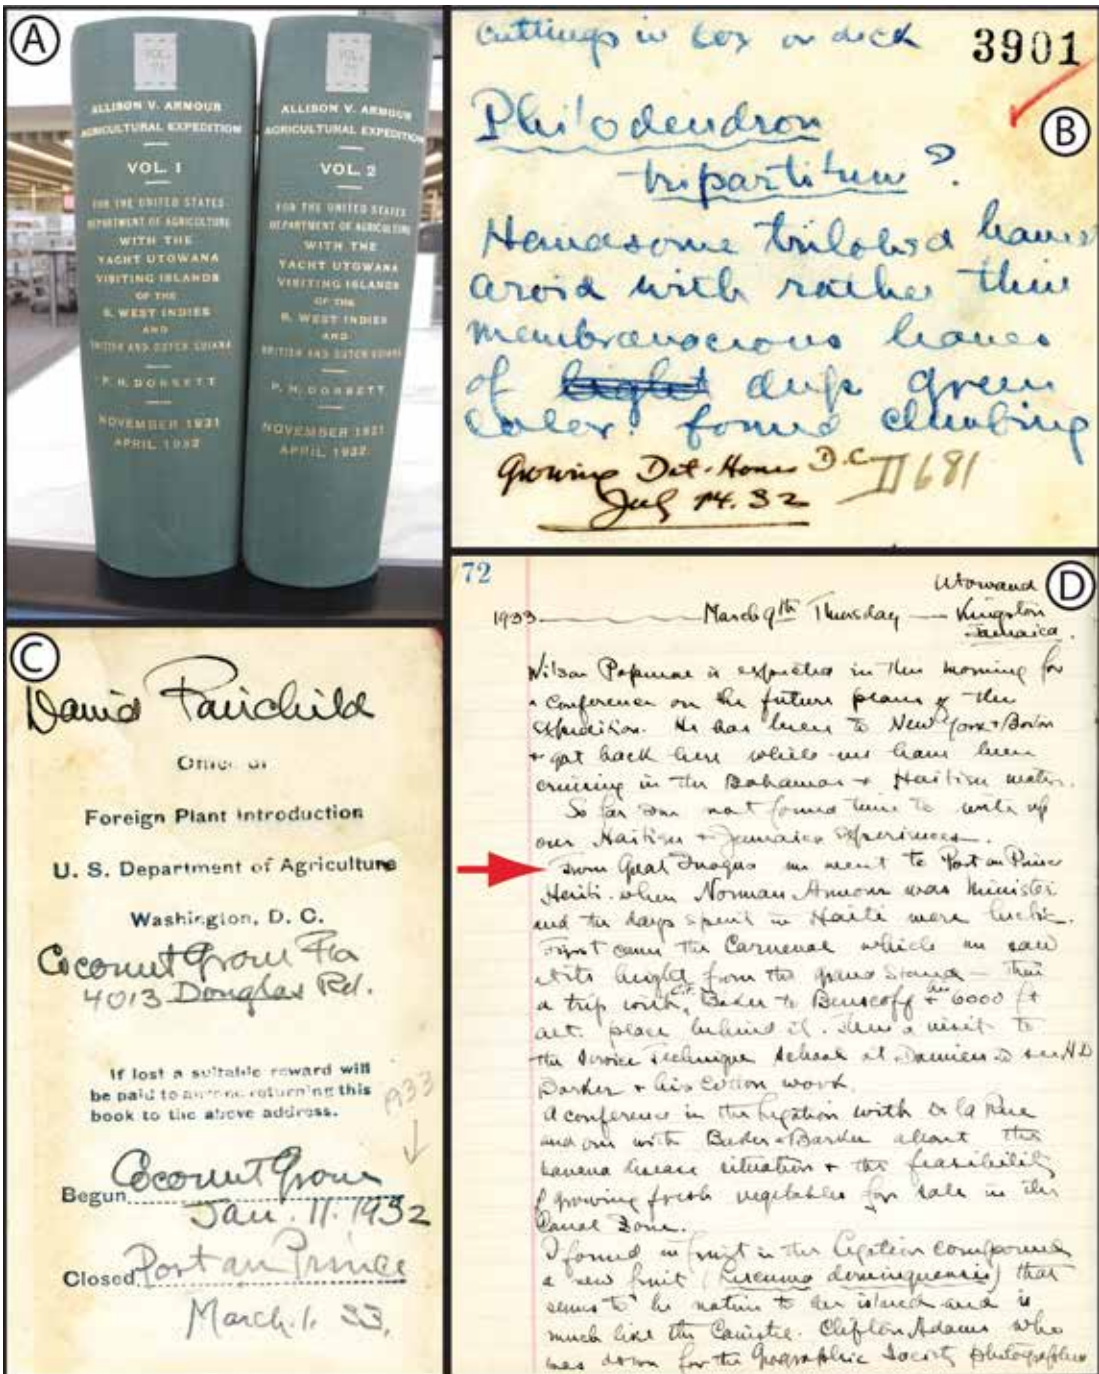 A
VOL.
ALLISON V. ARMOUR
AGRICULTURAL EXPEDITION
VOL. 1
FOR THE UNITED STATES
DEPARTMENT OF AGRICULTURE
WITH THE
YACHT UTOWANA
VISITING ISLANDS
OF THE
S. WEST INDIES
AND
BRITISH AND DUTCH GUIANA
P. H. DORSETT
NOVEMBER 1931
APRIL 1932
VOL.
ALLISON V. ARMOUR
AGRICULTURAL EXPEDITION
VOL. 2
FOR THE UNITED STATES
DEPARTMENT OF AGRICULTURE
WITH THE
YACHT UTOWANA
VISITING ISLANDS
OF THE
S. WEST INDIES
AND
BRITISH AND DUTCH GUIANA
P. H. DORSETT
NOVEMBER 1931
APRIL 1932
B
cuttings in box on deck 3901
Philodendron
tripartitum ?
Handsome trilobed leaved
aroid with rather thin
membranaceous leaves
of light deep green
color. found climbing
Growing Det. House D.C. II 681
July 14. 32
C
David Fairchild
Office of
Foreign Plant Introduction
U. S. Department of Agriculture
Washington, D. C.
Coconut Grove Fla
4013 Douglas Rd.
If lost a suitable reward will
be paid to anyone returning this
book to the above address.
1933
Begun Coconut Grove
Jan. 11. 1932
Closed Port au Prince
March. 1. 33.
D
72 Utowana
1933 March 9th Thursday Kingston
Jamaica.
Wilson Popenoe is expected in this morning for
a conference on the future plans of the
expedition. He has been to New York + Boston
+ got back here while we have been
cruising in the Bahamas + Haitian waters.
So far have not found time to write up
our Haitian + Jamaica experiences.
From Great Inagua we went to Port au Prince
Haiti where Norman Armour was Minister
and the days spent in Haiti were hectic.
First came the Carneval which we saw
at its height from the grand stand - then
a trip with Baker to + an 6000 ft
alt. place behind it. Then a visit to
the Service Technique school at Damien to see H D
Barker + his cotton work.
A conference in the legation with de la Rue
and one with Baker + Barker about the
banana disease situation + the feasibility
of growing fresh vegetables for sale in the
Canal Zone.
I found in fruit in the legation compound
a new fruit (Lucuma dominguensis) that
seems to be native to the island and is
much like the Canistel. Clifton Adams who
was down for the Geographic Society photographer